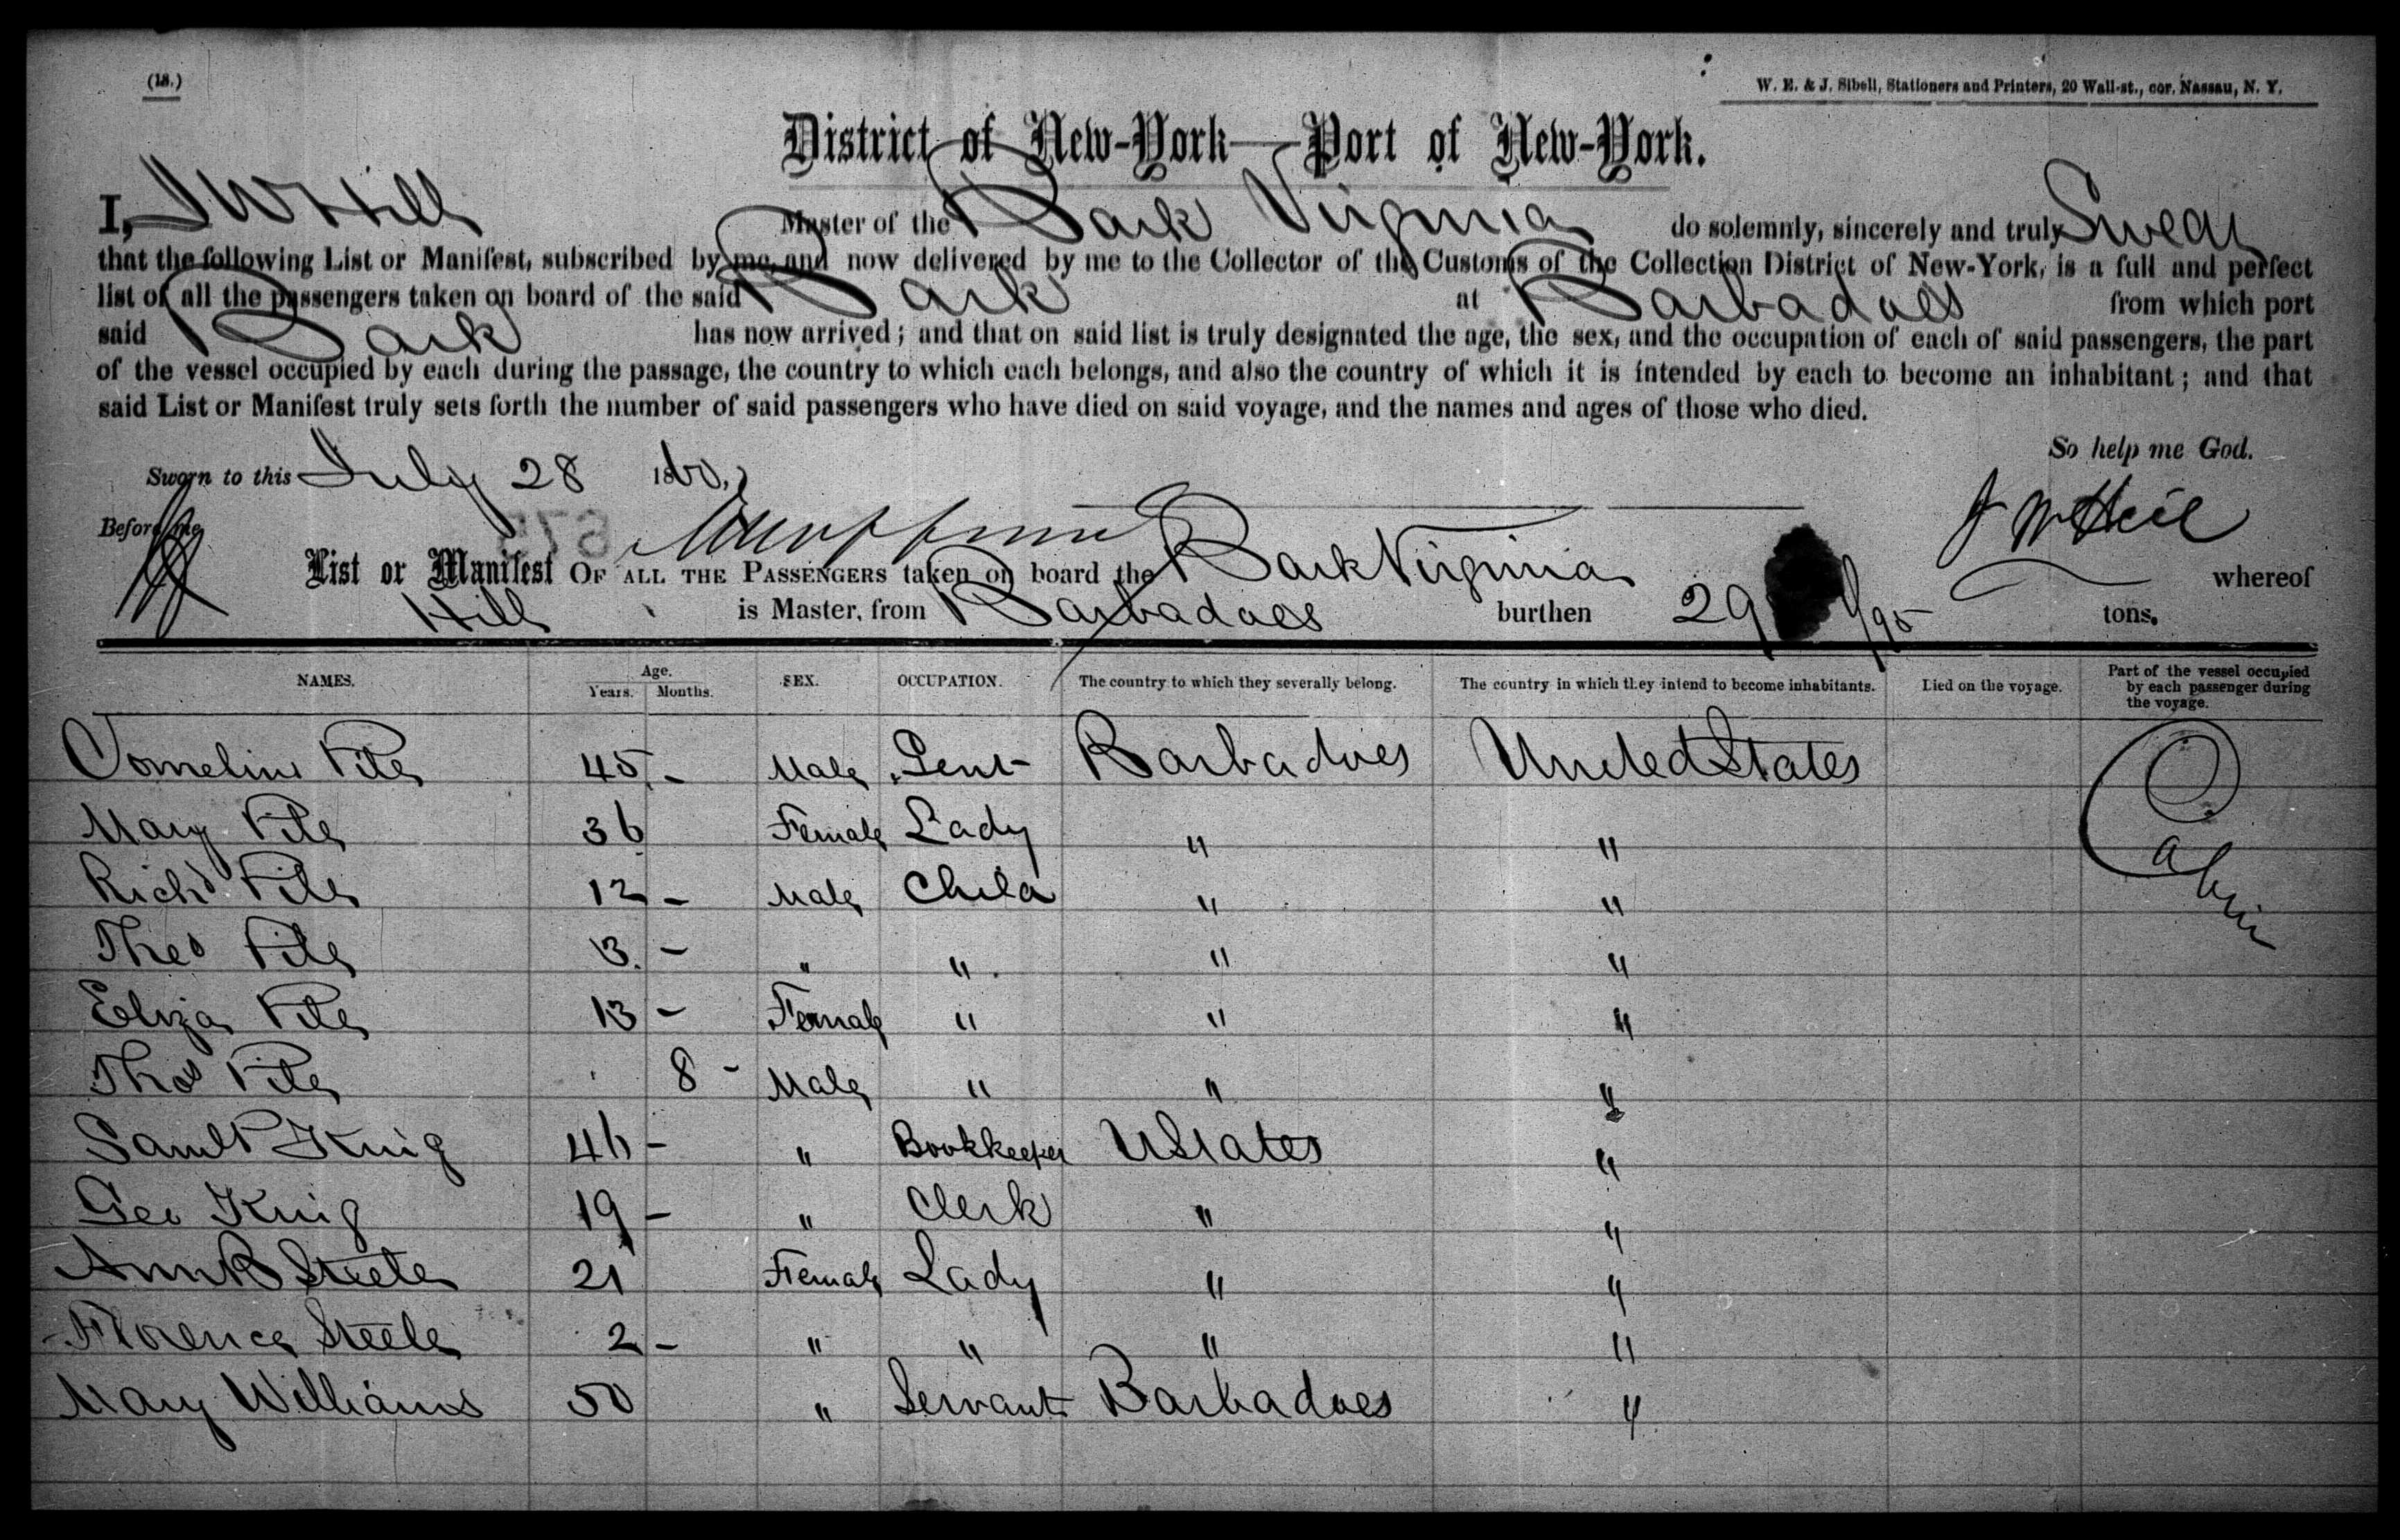 (18.)
W. E. & J. Sibell, Stationers and Printers, 20 Wall-st., cor. Nassau, N. Y.
District of New-York—Port of New-York.
I, J W Hill Master of the Bark Virginia do solemnly, sincerely and truly Swear
that the following List or Manifest, subscribed by me, and now delivered by me to the Collector of the Customs of the Collection District of New-York, is a full and perfect
list of all the passengers taken on board of the said Bark at Barbadoes from which port
said Bark has now arrived; and that on said list is truly designated the age, the sex, and the occupation of each of said passengers, the part
of the vessel occupied by each during the passage, the country to which each belongs, and also the country of which it is intended by each to become an inhabitant; and that
said List or Manifest truly sets forth the number of said passengers who have died on said voyage, and the names and ages of those who died.
So help me God.
Sworn to this July 28 1860,
J W Hill
Before me
List or Manifest OF ALL THE PASSENGERS taken on board the Bark Virginia whereof
Hill is Master, from Barbadoes burthen 29 /95 tons.
NAMES. Age. Years. Months. SEX. OCCUPATION. The country to which they severally belong. The country in which they intend to become inhabitants. Died on the voyage. Part of the vessel occupied by each passenger during the voyage.
Pile 45 - Male Gent Barbadoes United States Cabin
Mary Pile 36 Female Lady " "
Richd Pile 12 - Male Child " "
Theo Pile 3. - " " " "
Eliza Pile 13 - Female " " "
Thos Pile 8 - Male " " "
Saml P King 46 - " Bookkeeper U States "
Geo King 19 - " Clerk " "
Ann R Steele 21 Female Lady " "
Florence Steele 2 - " " " "
Mary Williams 50 " Servant Barbadoes "